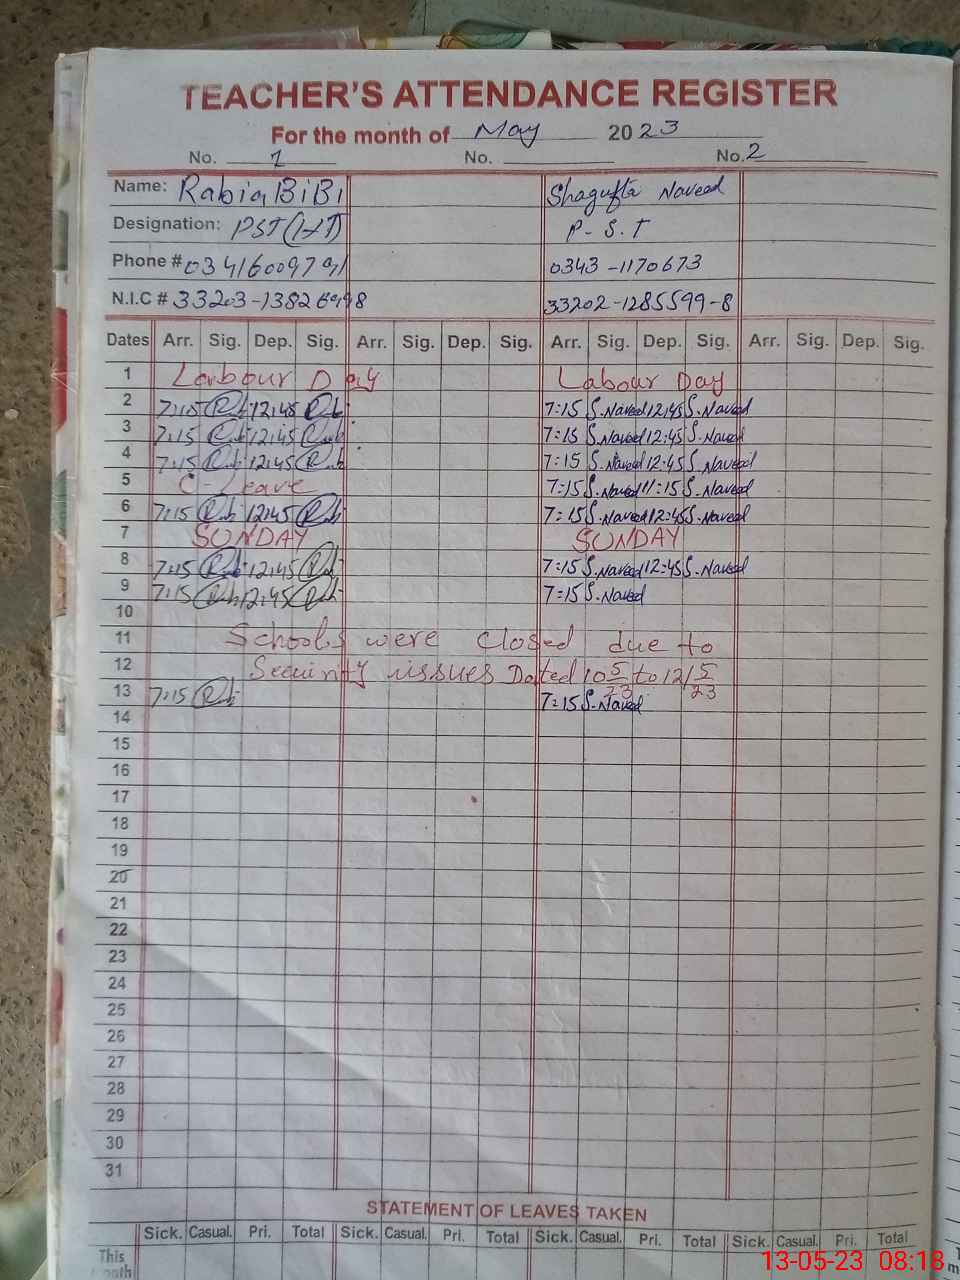 TEACHER'S ATTENDANCE REGISTER
For the month of May 2023
No. 1 No. No. 2
Name: Rabia BiBi Shagufta Naveed
Designation: PST (HT) P-S.T
Phone # 03416009791 0343-1170673
N.I.C # 33203-1382699 8 33202-1285599-8
Dates Arr. Sig. Dep. Sig. Arr. Sig. Dep. Sig. Arr. Sig. Dep. Sig. Arr. Sig. Dep. Sig.
1 Labour Day Labour Day
2 7:15 Rub 12:45 Rub 7:15 S.Naveed 12:45 S.Naveed
3 7:15 Rub 12:45 Rub 7:15 S.Naveed 12:45 S.Naveed
4 7:15 Rub 12:45 Rub 7:15 S.Naveed 12:45 S.Naveed
5 C-Leave 7:15 S.Naveed 11:15 S.Naveed
6 7:15 Rub 12:45 Rub 7:15 S.Naveed 12:45 S.Naveed
7 SUNDAY SUNDAY
8 7:15 Rub 12:45 Rub 7:15 S.Naveed 12:45 S.Naveed
9 7:15 Rub 12:45 Rub 7:15 S.Naveed
10
11 Schools were closed due to
12 Security issues Dated 10 5/23 to 12/5/23
13 7:15 Rub 7:15 S.Naveed
14
15
16
17
18
19
20
21
22
23
24
25
26
27
28
29
30
31
STATEMENT OF LEAVES TAKEN
Sick. Casual. Pri. Total Sick. Casual. Pri. Total Sick. Casual. Pri. Total Sick. Casual. Pri. Total
This
13-05-23 08:18